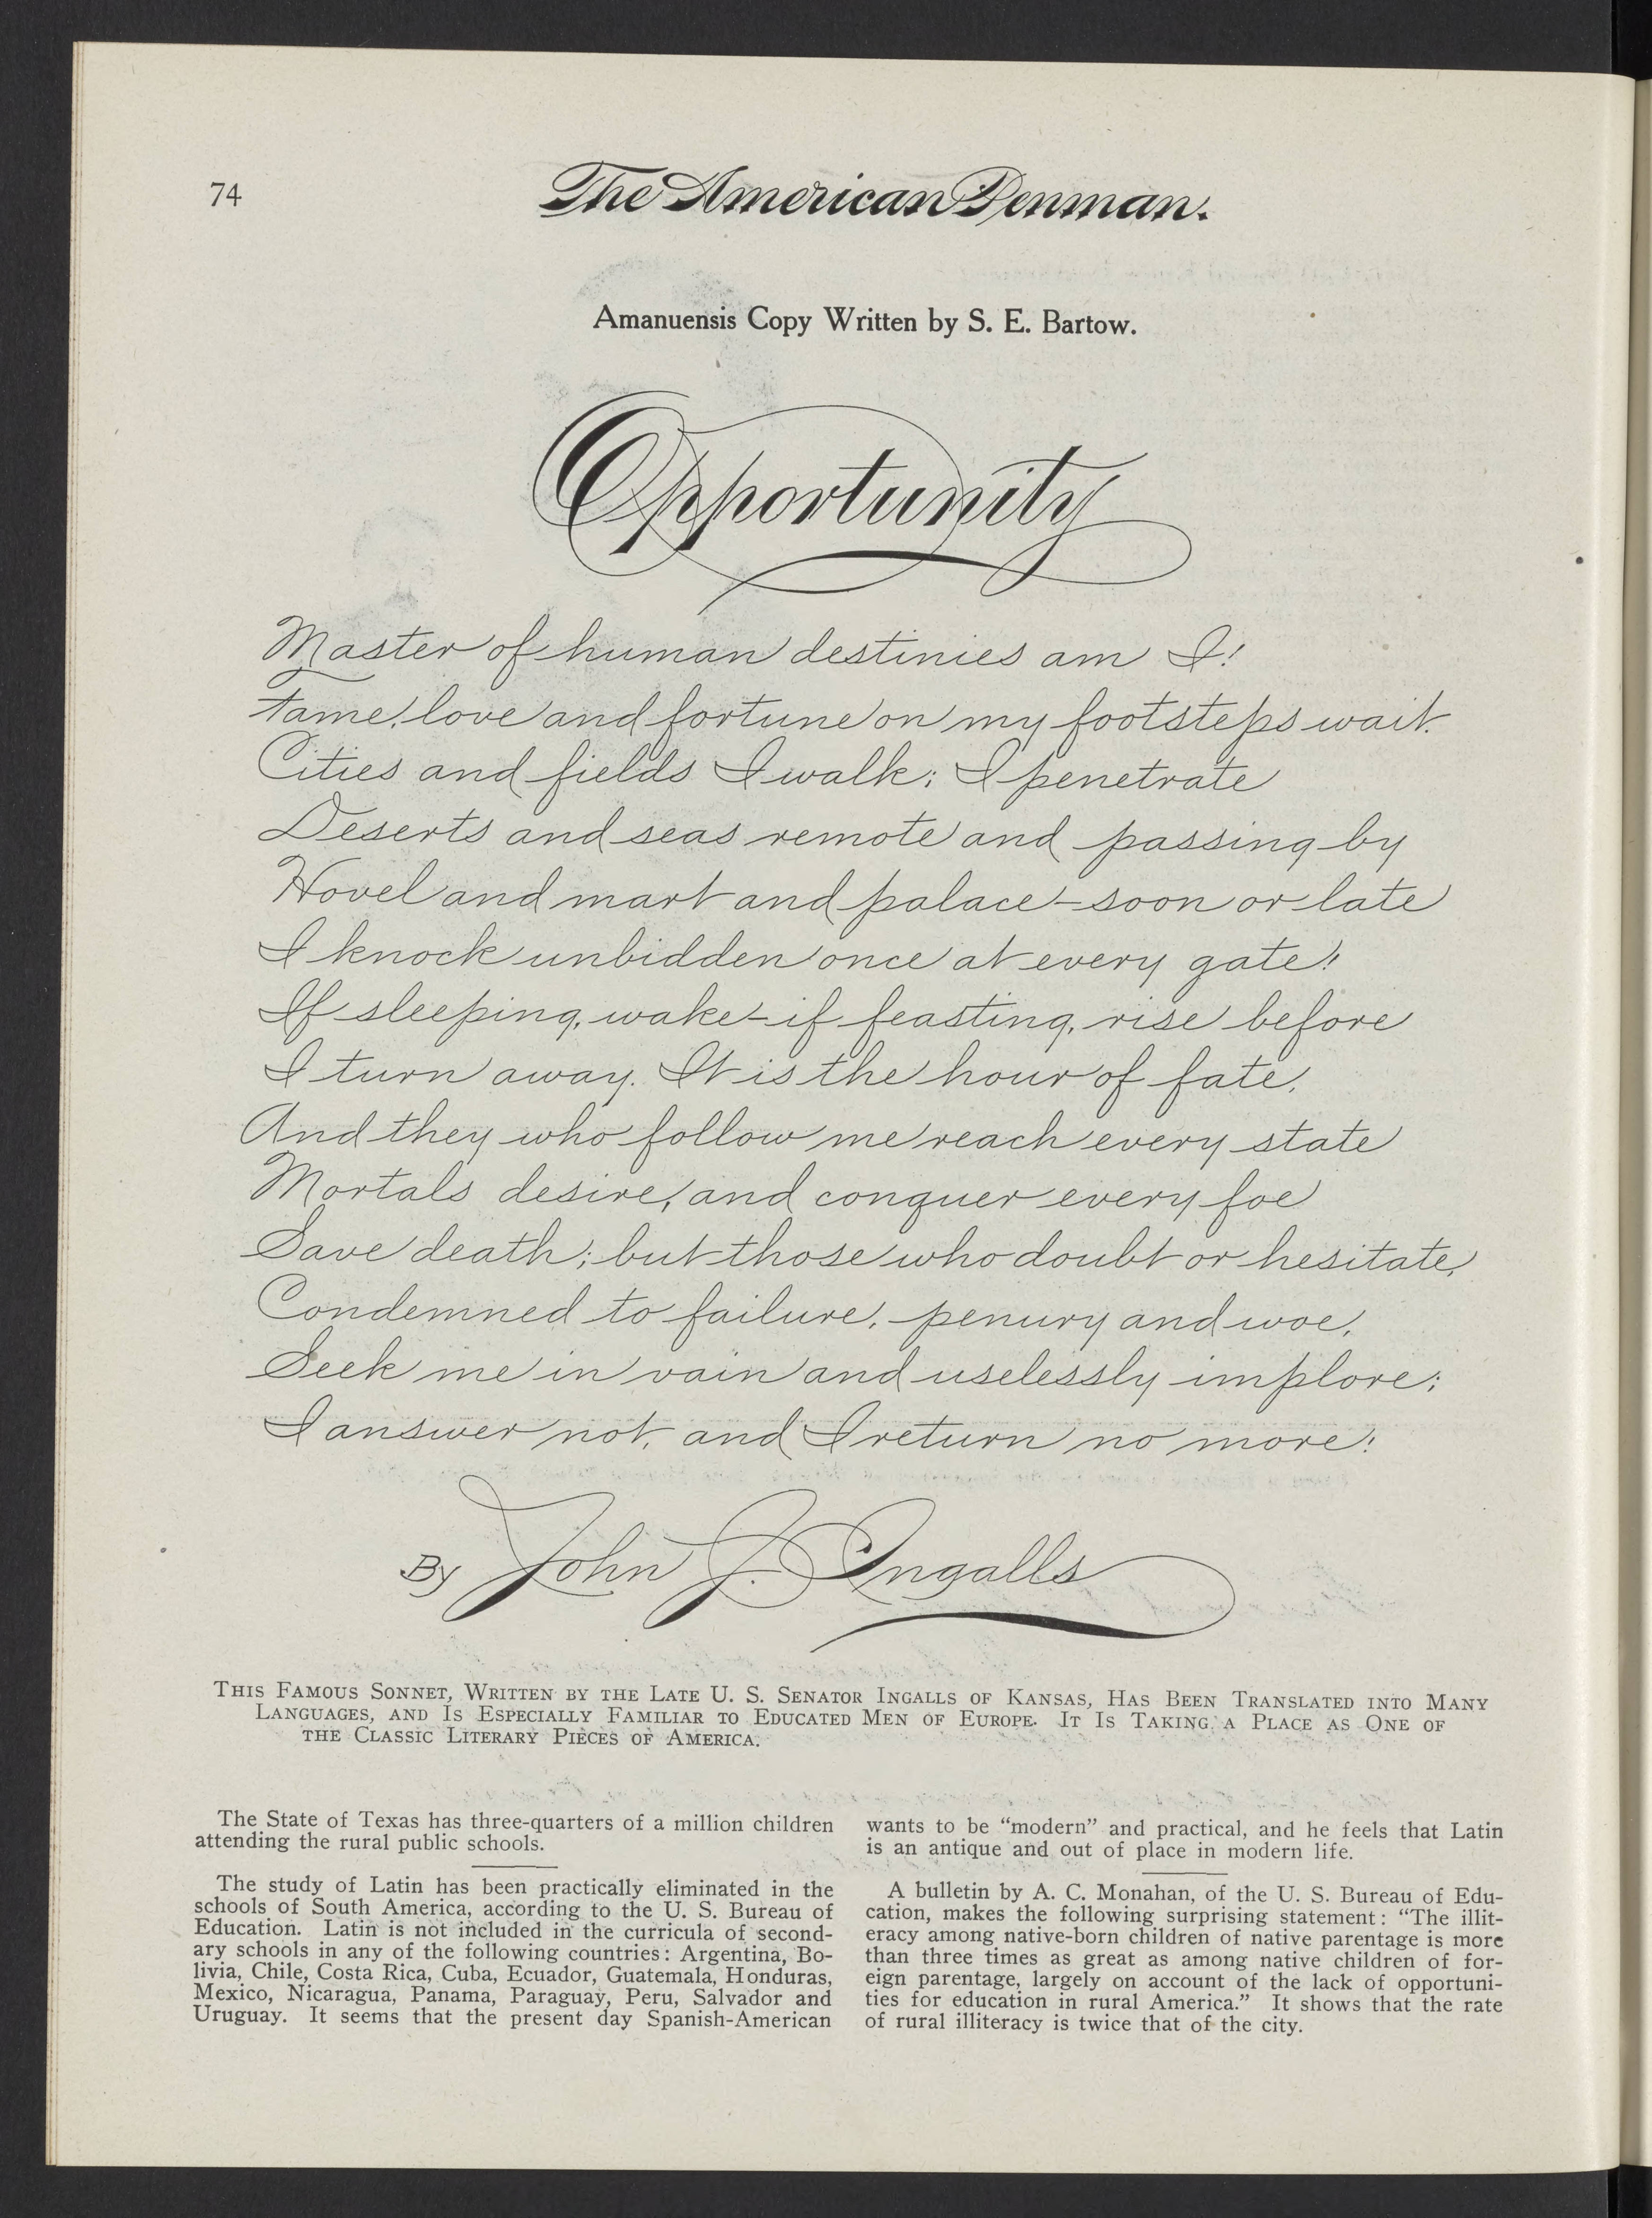 74
The American Penman.
Amanuensis Copy Written by S. E. Bartow.
Opportunity
Master of human destinies am I!
Fame, love and fortune on my footsteps wait.
Cities and fields I walk; I penetrate
Deserts and seas remote and passing by
Hovel and mart and palace - soon or late
I knock unbidden once at every gate!
If sleeping, wake - if feasting, rise before
I turn away. It is the hour of fate,
And they who follow me reach every state
Mortals desire, and conquer every foe
Save death; but those who doubt or hesitate,
Condemned to failure, penury and woe,
Seek me in vain and uselessly implore;
I answer not, and I return no more!
By John J. Ingalls
This Famous Sonnet, Written by the Late U. S. Senator Ingalls of Kansas, Has Been Translated into Many
Languages, and Is Especially Familiar to Educated Men of Europe. It Is Taking a Place as One of
the Classic Literary Pieces of America.
The State of Texas has three-quarters of a million children
attending the rural public schools.
The study of Latin has been practically eliminated in the
schools of South America, according to the U. S. Bureau of
Education. Latin is not included in the curricula of second-
ary schools in any of the following countries: Argentina, Bo-
livia, Chile, Costa Rica, Cuba, Ecuador, Guatemala, Honduras,
Mexico, Nicaragua, Panama, Paraguay, Peru, Salvador and
Uruguay. It seems that the present day Spanish-American
wants to be "modern" and practical, and he feels that Latin
is an antique and out of place in modern life.
A bulletin by A. C. Monahan, of the U. S. Bureau of Edu-
cation, makes the following surprising statement: "The illit-
eracy among native-born children of native parentage is more
than three times as great as among native children of for-
eign parentage, largely on account of the lack of opportuni-
ties for education in rural America." It shows that the rate
of rural illiteracy is twice that of the city.